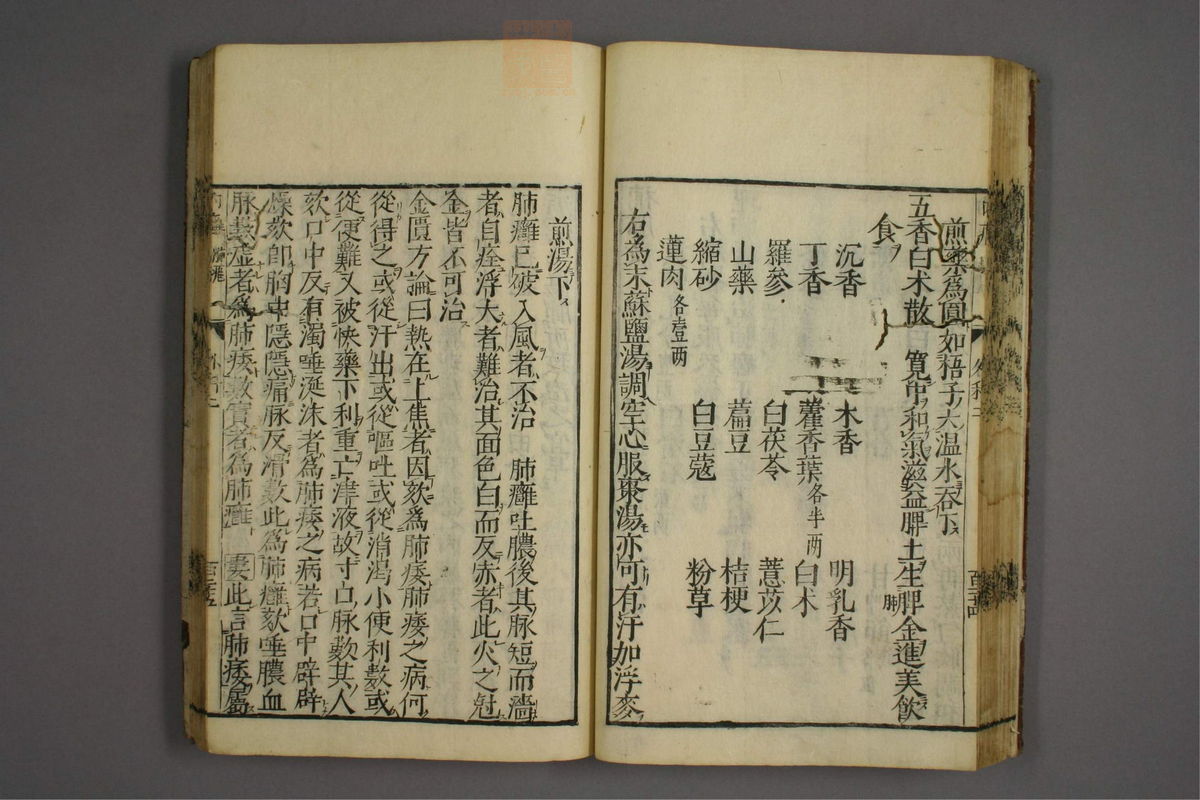 煎藥為圓如梧子大温水吞下
五香白术散 寬中和氣滋益脾土生肺金進美飲
食
沉香 木香 明乳香
丁香 藿香葉各半兩 白术
羅參 白茯苓 薏苡仁
山藥 藊豆 桔梗
縮砂 白豆蔻 粉草
蓮肉各壹兩
右為末蘇鹽湯調空心服棗湯亦可有汗加浮麥
煎湯下
肺癰已破入風者不治 肺癰吐膿後其脉短而濇
者自痊浮大者難治其面色白而反赤者此火之尅
金皆不可治
金匱方論曰熱在上焦者因欬為肺痿肺痿之病何
從得之或從汗出或從嘔吐或從消渴小便利數或
從便難又被快藥下利重亡津液故寸口脉數其人
欬口中反有濁唾涎沫者為肺痿之病若口中辟辟
燥欬即胸中隱隱痛脉反滑數此為肺癰欬唾膿血
脉數虛者為肺痿數實者為肺癰 婁此言肺痿屬